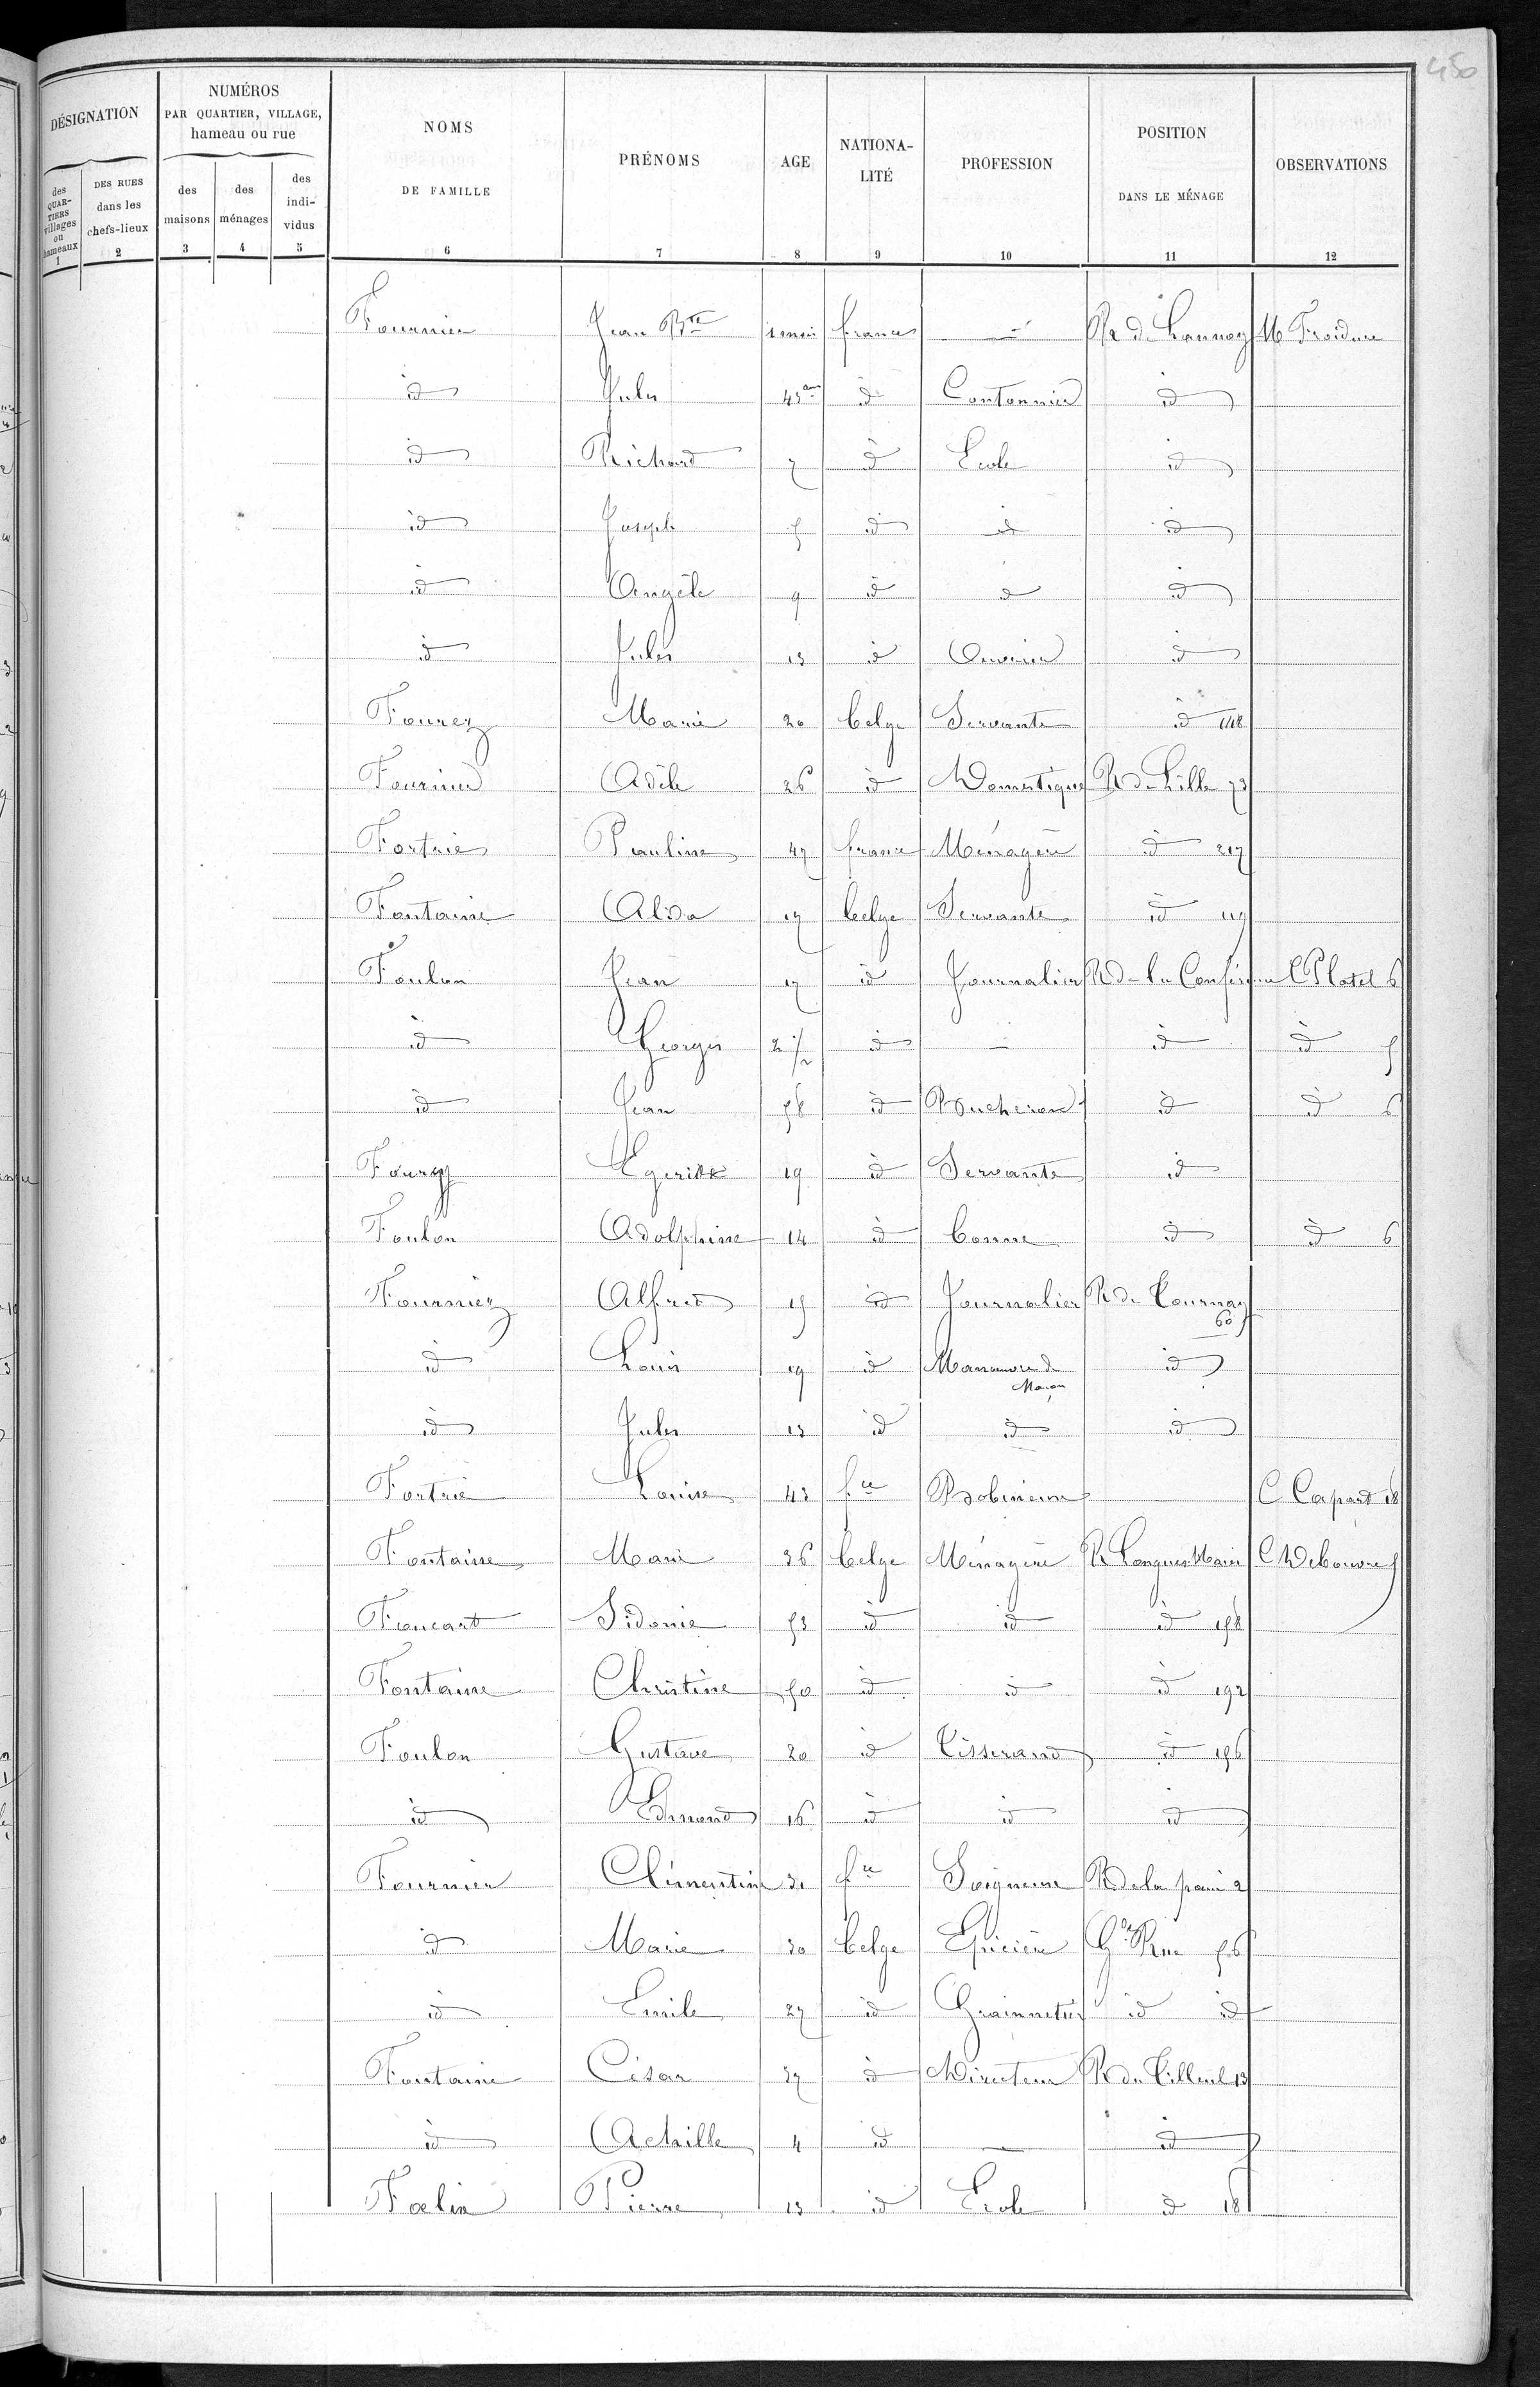 450
DÉSIGNATION
NUMÉROS
PAR QUARTIER, VILLAGE,
hameau ou rue
NOMS
DE FAMILLE
PRÉNOMS
AGE
NATIONA-
LITÉ
PROFESSION
POSITION
DANS LE MÉNAGE
OBSERVATIONS
des QUAR-TIERS villages ou hameaux
DES RUES dans les chefs-lieux
des maisons
des ménages
des indi-vidus
1 2 3 4 5 6 7 8 9 10 11 12
Fournier Jean Bte 1 mois france — R de Lannoy M Froidure
id Jules 43 ans id Cantonnier id
id Richard 7 id Ecole id
id Joseph 5 id id id
id Angèle 9 id id id
id Jules 13 id Ouvrier id
Fourez Marie 20 belge Servante id 148
Fournier Adèle 26 id Domestique R de Lille 73
Fortrie Pauline 47 france Ménagère id 217
Fontaine Alida 17 belge Servante id 119
Foulon Jean 17 id Journalier R de la Conférence C Platel 6
id Georges 2 1/2 id — id id 5
id Jean 56 id Bucheron id id 6
Fourez 19 id Servante id
Foulon Adolphine 14 id bonne id id 6
Fourniez Alfred 15 id Journalier R de Tournay 60
id Louis 19 id Manœuvre de Maçon id
id Jules 13 id id id
Fortrie Louise 43 fce Bobineuse C Capart 18
Fontaine Marie 36 belge Ménagère R Longues Haies C Debouvre 5
Foucart Sidonie 53 id id id 158
Fontaine Christine 50 id id id 192
Foulon Gustave 20 id Tisserand id 196
id Edmond 16 id id id
Fournier Clémentine 30 fce Soigneuse R de la paix 2
id Marie 30 belge Epicière Gde Rue 56
id Emile 27 id Grainnetier id id
Fontaine César 37 id Directeur R du Tilleul 13
id Achille 4 id — id
Foelix Pierre 13 id Ecole id 18